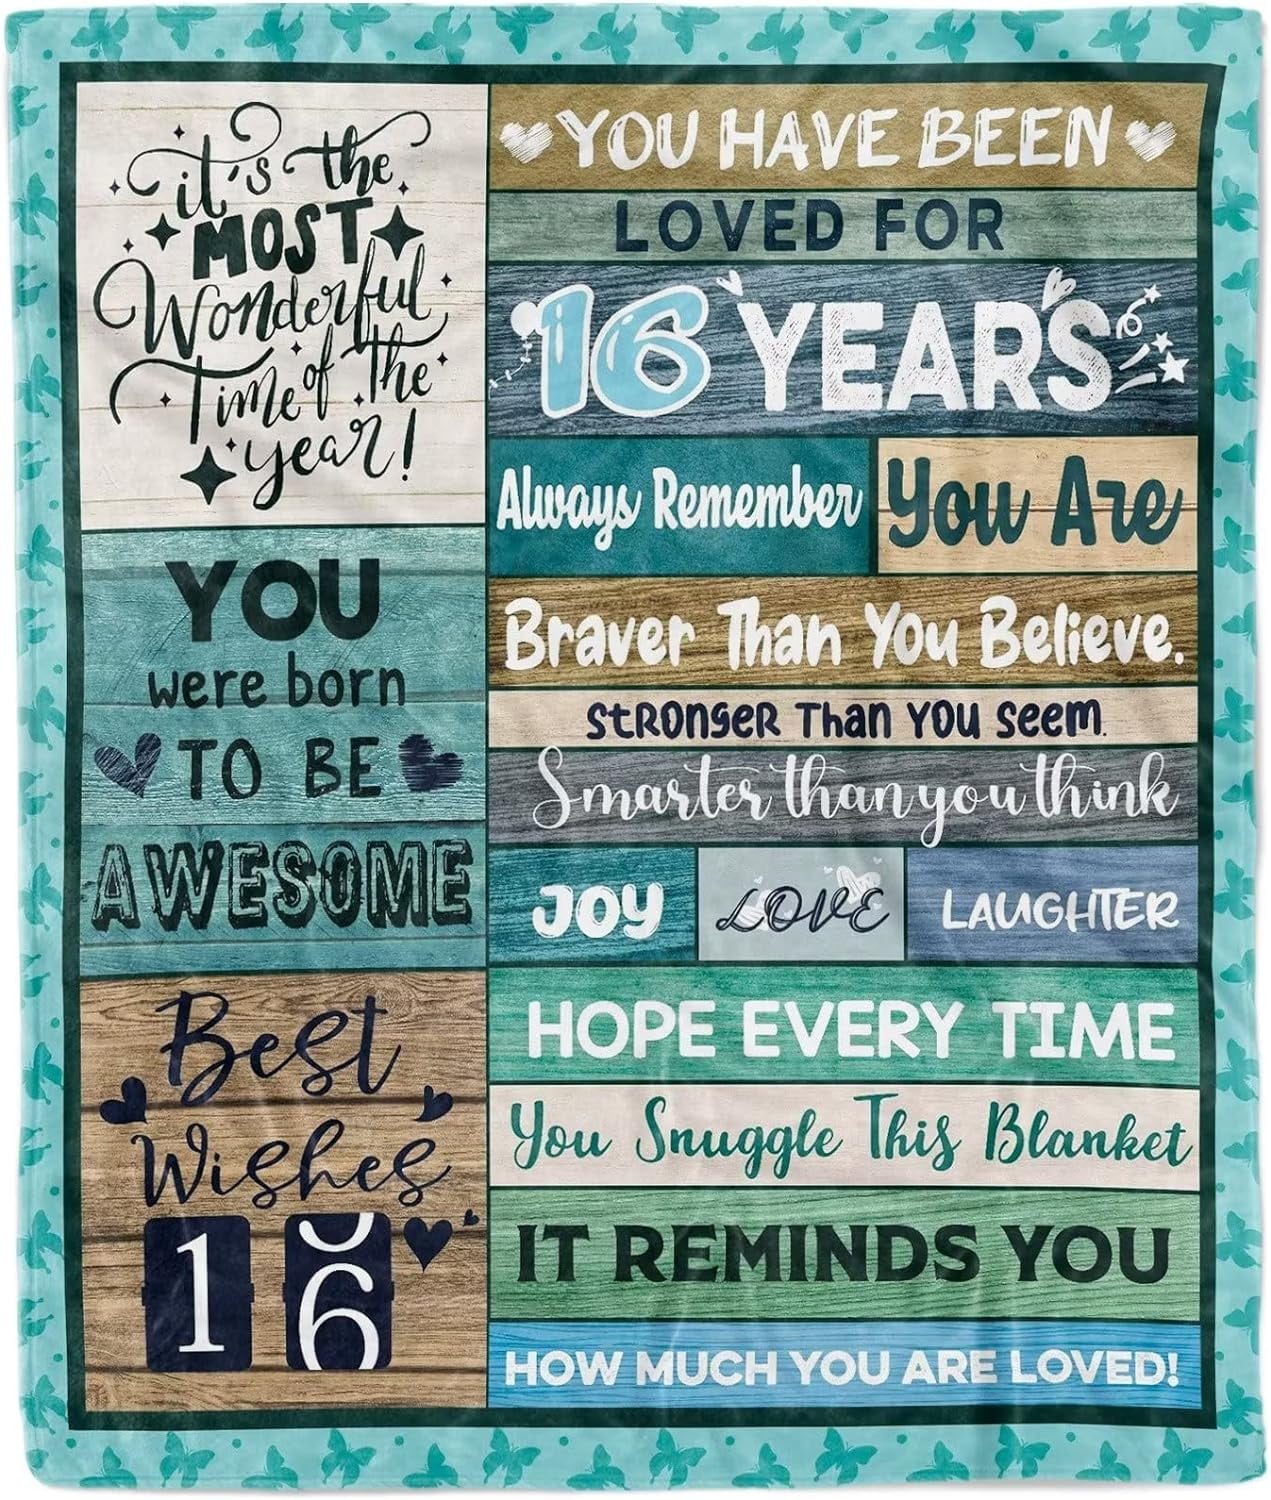 it's the
MOST
Wonderful
Time of the
year!
YOU
were born
TO BE
AWESOME
Best
Wishes
16
YOU HAVE BEEN
LOVED FOR
16 YEARS
Always Remember
You Are
Braver Than You Believe.
STRONGER THAN YOU SEEM.
Smarter than you think
JOY
LOVE
LAUGHTER
HOPE EVERY TIME
You Snuggle This Blanket
IT REMINDS YOU
HOW MUCH YOU ARE LOVED!